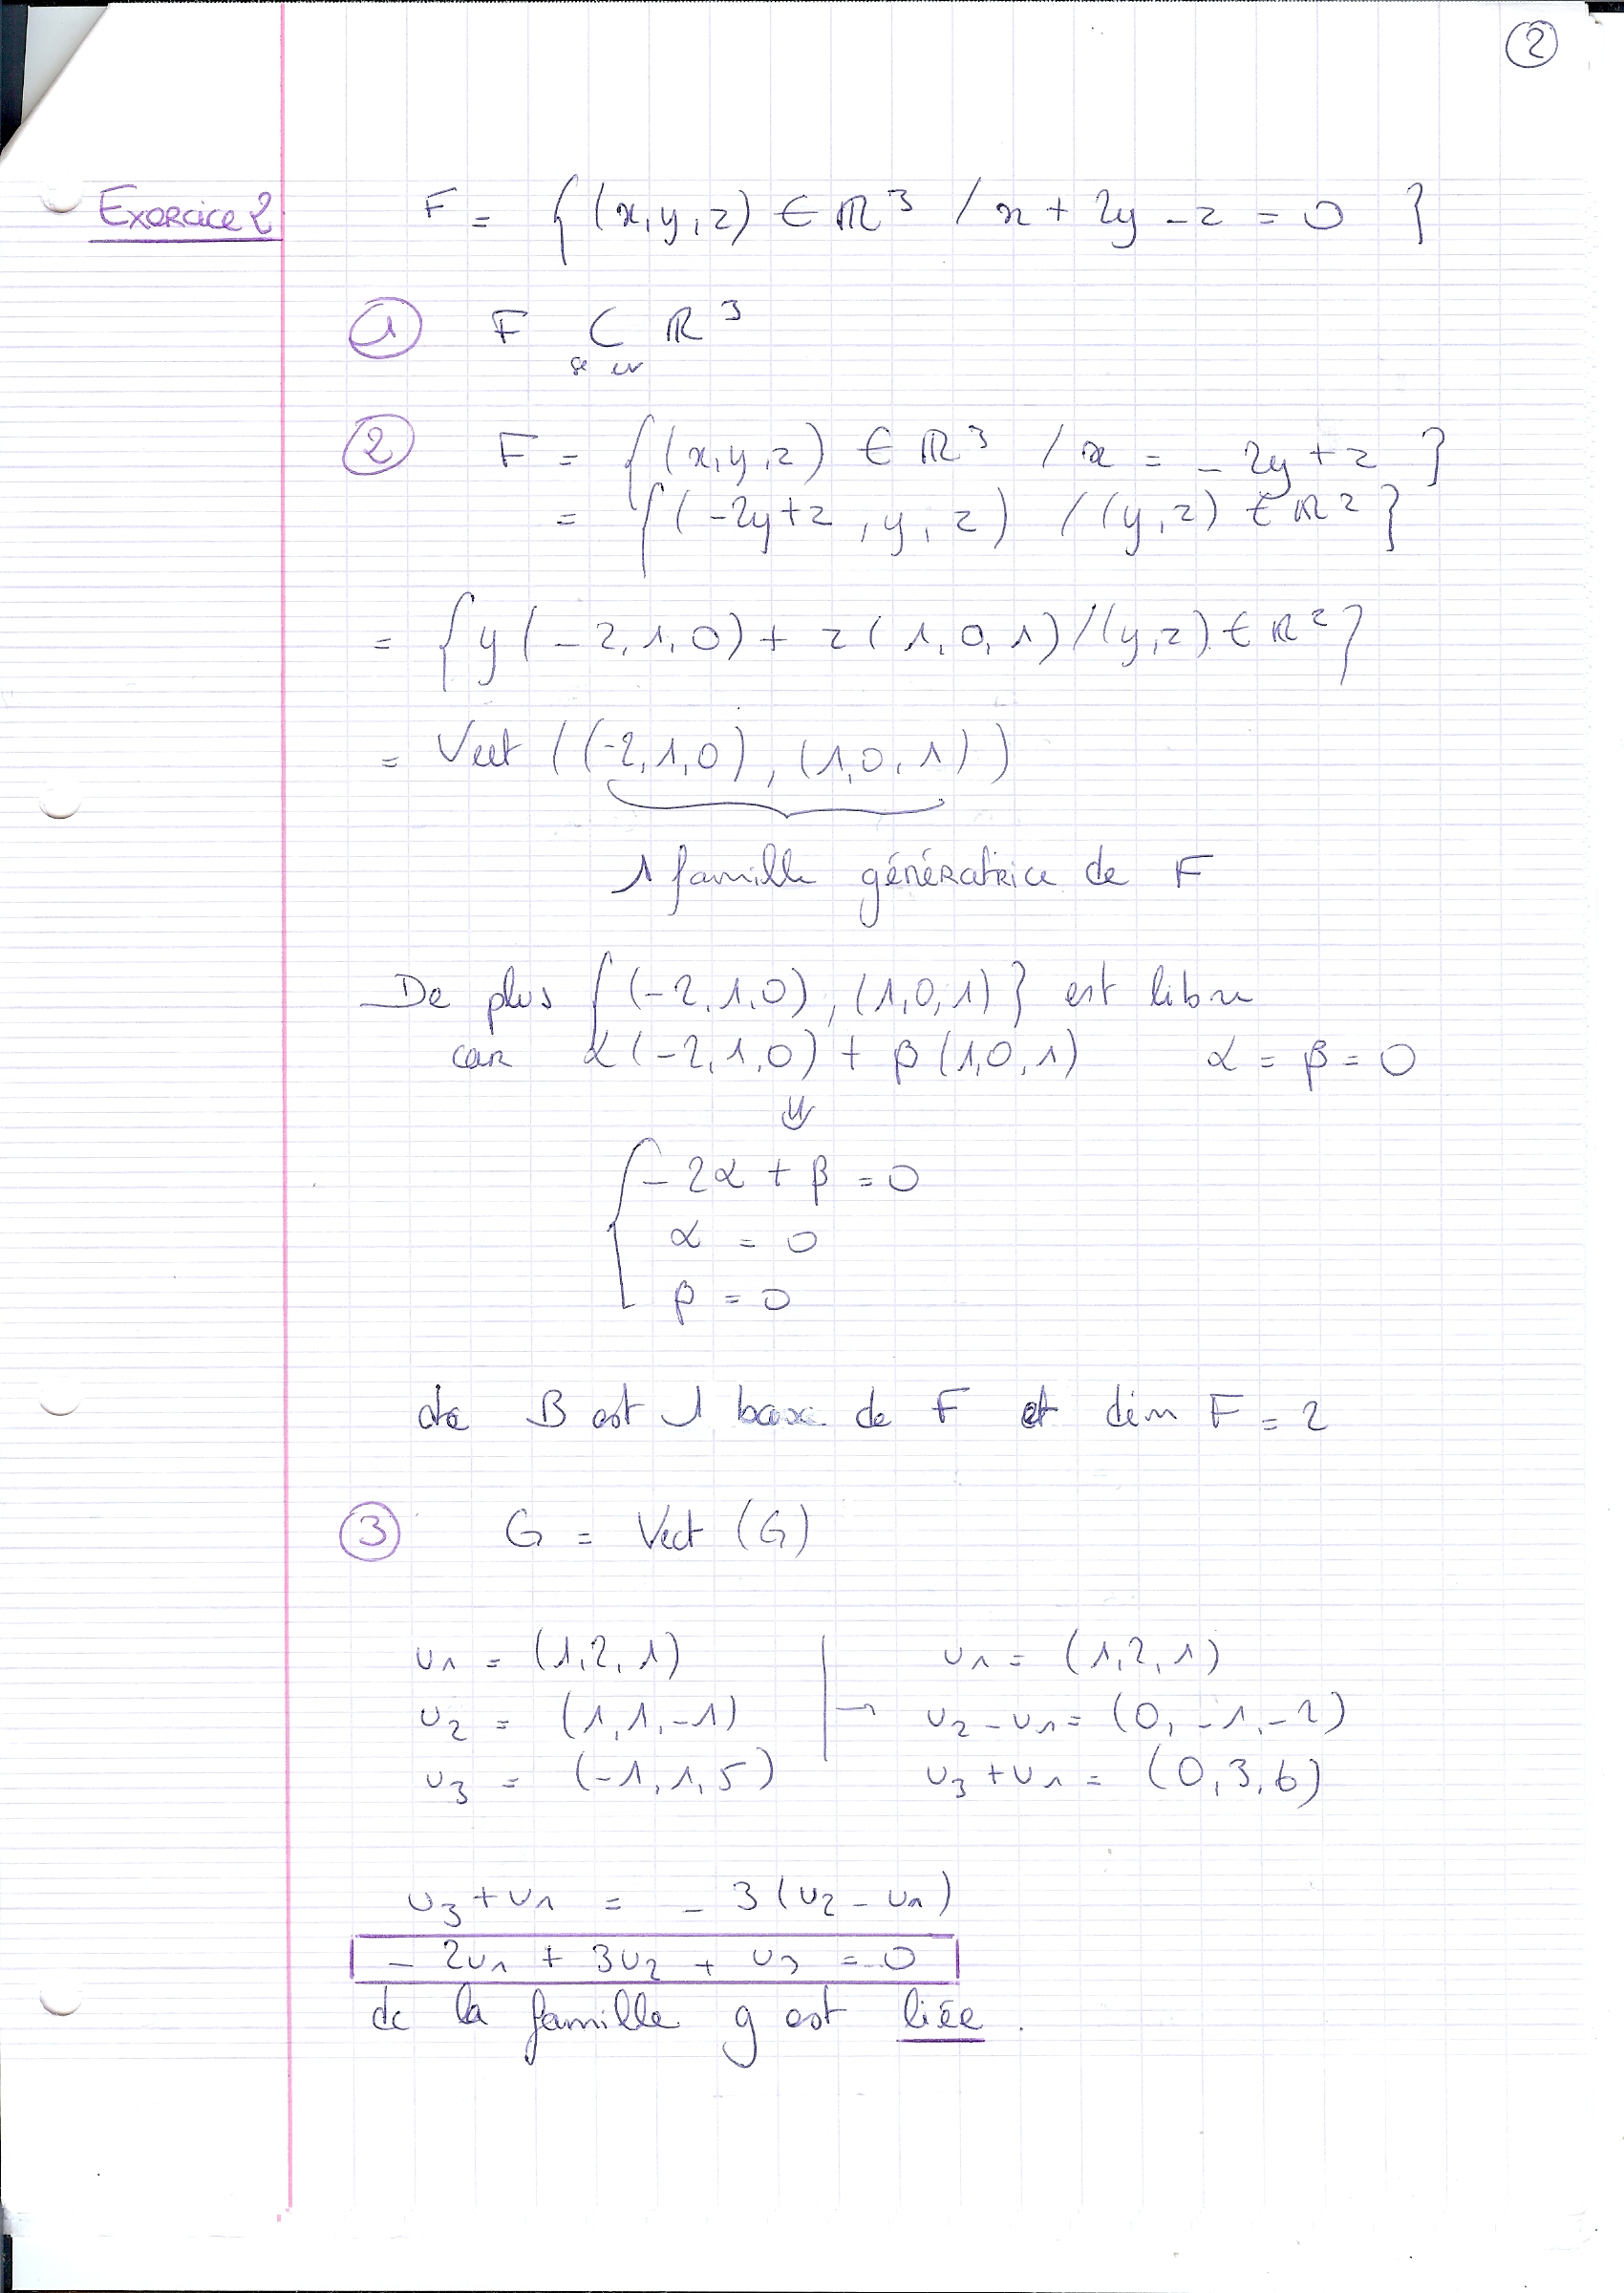 2
Exercice 2 F = { (x,y,z) ∈ ℝ³ / x + 2y - z = 0 }
1 F ⊂ ℝ³
se ev
2 F = { (x,y,z) ∈ ℝ³ / x = - 2y + z }
= { (-2y+z, y, z) / (y,z) ∈ ℝ² }
= { y (-2,1,0) + z (1,0,1) / (y,z) ∈ ℝ² }
= Vect ((-2,1,0), (1,0,1))
1 famille génératrice de F
De plus { (-2,1,0), (1,0,1) } est libre
car α(-2,1,0) + β(1,0,1) α = β = 0
⇓
- 2α + β = 0
α = 0
β = 0
dc B est 1 base de F et dim F = 2
3 G = Vect (G)
u1 = (1,2,1) u1 = (1,2,1)
u2 = (1,1,-1) → u2 - u1 = (0,-1,-2)
u3 = (-1,1,5) u3 + u1 = (0,3,6)
u3 + u1 = - 3 (u2 - u1)
- 2u1 + 3u2 + u3 = 0
dc la famille g est liée.